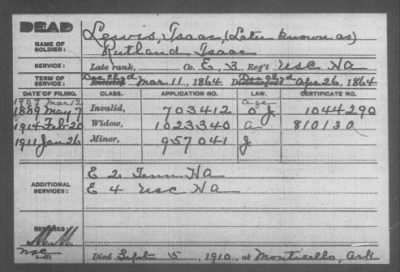 DEAD
NAME OF SOLDIER:
Lewis, Isaac, (Later known as)
Rutland Isaac
SERVICE:
Late rank, Co. E, 3 Reg't USC HA
TERM OF SERVICE:
Enlisted Mar. 11, 1864 Discharged Apr 26, 1864
DATE OF FILING. CLASS. APPLICATION NO. LAW. CERTIFICATE NO.
1907 Mar 12 age
1889 May 7 Invalid, 703412 a J 1044290
1914 Feb 20 Widow, 1023340 a 810130
1911 Jan 26 Minor, 957041 J
ADDITIONAL SERVICES:
E 2 Tenn HA
E 4 USC HA
REMARKS:
Died Sept 5, 1910, at Monticello, Ark